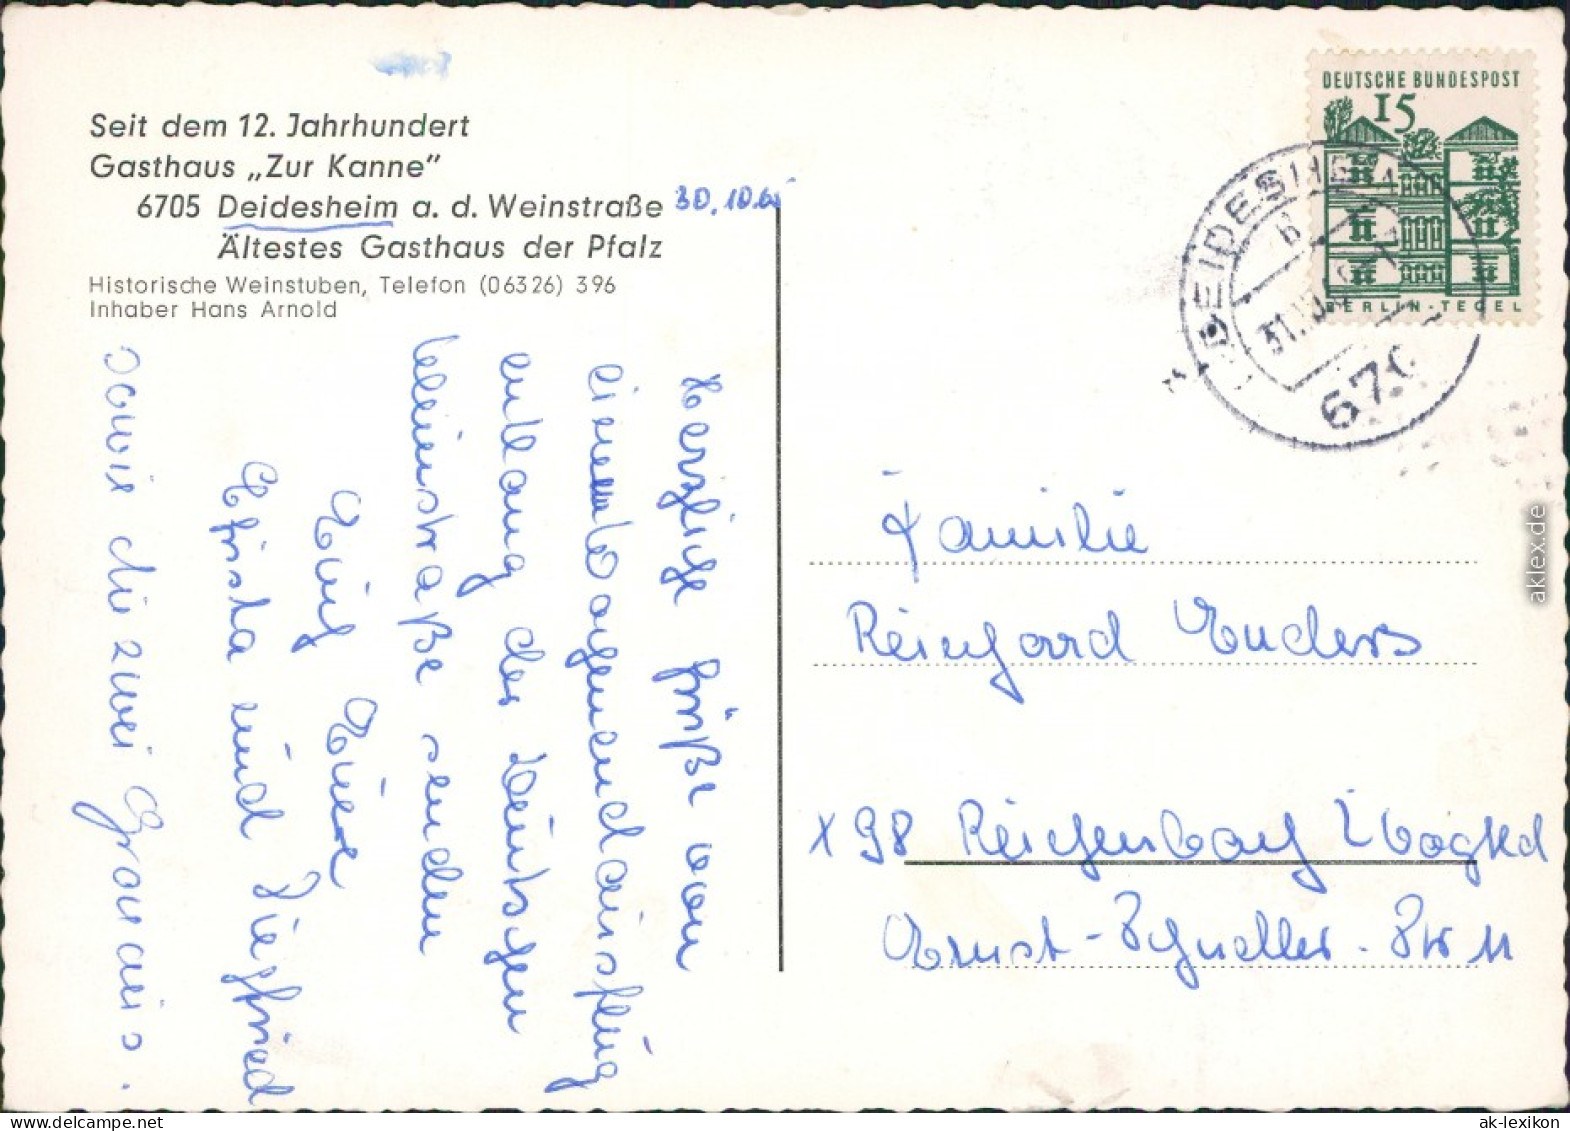 Seit dem 12. Jahrhundert
Gasthaus „Zur Kanne"
6705 Deidesheim a. d. Weinstraße 30.10.65
Ältestes Gasthaus der Pfalz
Historische Weinstuben, Telefon (06326) 396
Inhaber Hans Arnold
Herzliche Grüße von
einem
entlang der Deutschen
Weinstraße senden
Christa und Siegfried
sowie die zwei
DEUTSCHE BUNDESPOST
15
BERLIN-TEGEL
DEIDESHEIM
b
31.10.
670
Familie
Reinhard Enders
X 98 Reichenbach i Vogtld
Ernst-Schneller-Str 11
aklex.de
ak-lexikon